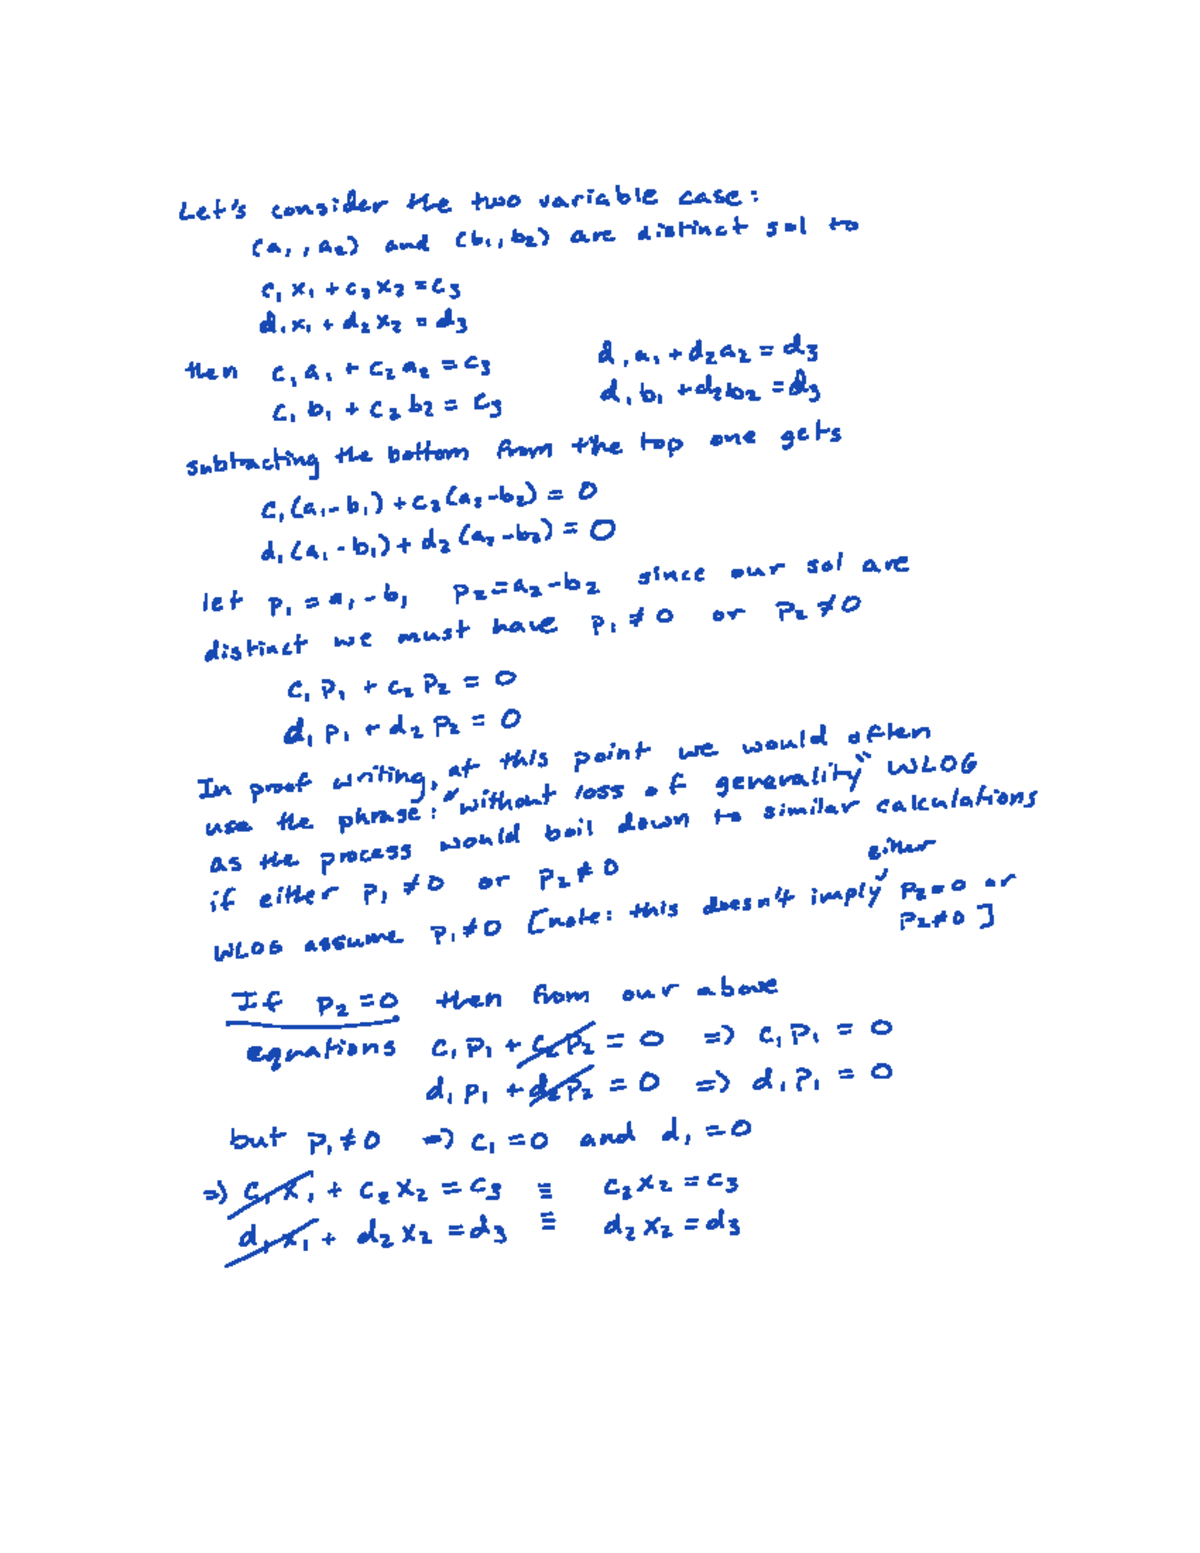 Let's consider the two variable case:
(a₁, a₂) and (b₁, b₂) are distinct sol to
c₁ x₁ + c₂ x₂ = c₃
d₁ x₁ + d₂ x₂ = d₃
then c₁ a₁ + c₂ a₂ = c₃ d₁ a₁ + d₂ a₂ = d₃
c₁ b₁ + c₂ b₂ = c₃ d₁ b₁ + d₂ b₂ = d₃
subtracting the bottom from the top one gets
c₁ (a₁ - b₁) + c₂ (a₂ - b₂) = 0
d₁ (a₁ - b₁) + d₂ (a₂ - b₂) = 0
let p₁ = a₁ - b₁ p₂ = a₂ - b₂ since our sol are
distinct we must have p₁ ≠ 0 or p₂ ≠ 0
c₁ p₁ + c₂ p₂ = 0
d₁ p₁ + d₂ p₂ = 0
In proof writing, at this point we would often
use the phrase: "without loss of generality" WLOG
as the process would boil down to similar calculations
if either p₁ ≠ 0 or p₂ ≠ 0
WLOG assume p₁ ≠ 0 [note: this doesn't imply either p₂ = 0 or
p₂ ≠ 0]
If p₂ = 0 then from our above
equations c₁ p₁ + c₂ p₂ = 0 ⇒ c₁ p₁ = 0
d₁ p₁ + d₂ p₂ = 0 ⇒ d₁ p₁ = 0
but p₁ ≠ 0 ⇒ c₁ = 0 and d₁ = 0
⇒ c₁ x₁ + c₂ x₂ = c₃ ≡ c₂ x₂ = c₃
d₁ x₁ + d₂ x₂ = d₃ ≡ d₂ x₂ = d₃